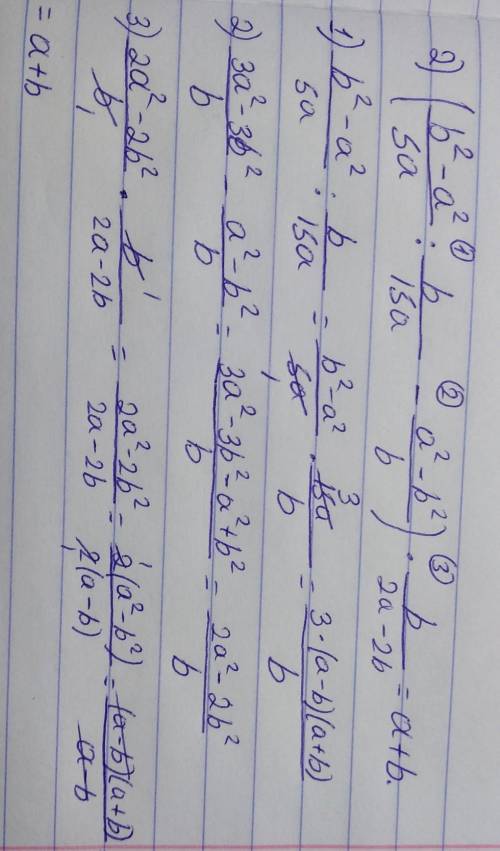 2) (b²-a²/5a ① : b/15a - ② a²-b²/b) ③ · b/2a-2b = a+b.
1) b²-a²/5a : b/15a = b²-a²/5a 1 · 15a 3/b = 3·(a-b)(a+b)/b
2) 3a²-3b²/b - a²-b²/b = 3a²-3b²-a²+b²/b = 2a²-2b²/b
3) 2a²-2b²/b 1 · b 1/2a-2b = 2a²-2b²/2a-2b = 2 1(a²-b²)/2 1(a-b) = (a-b)(a+b)/a-b
= a+b